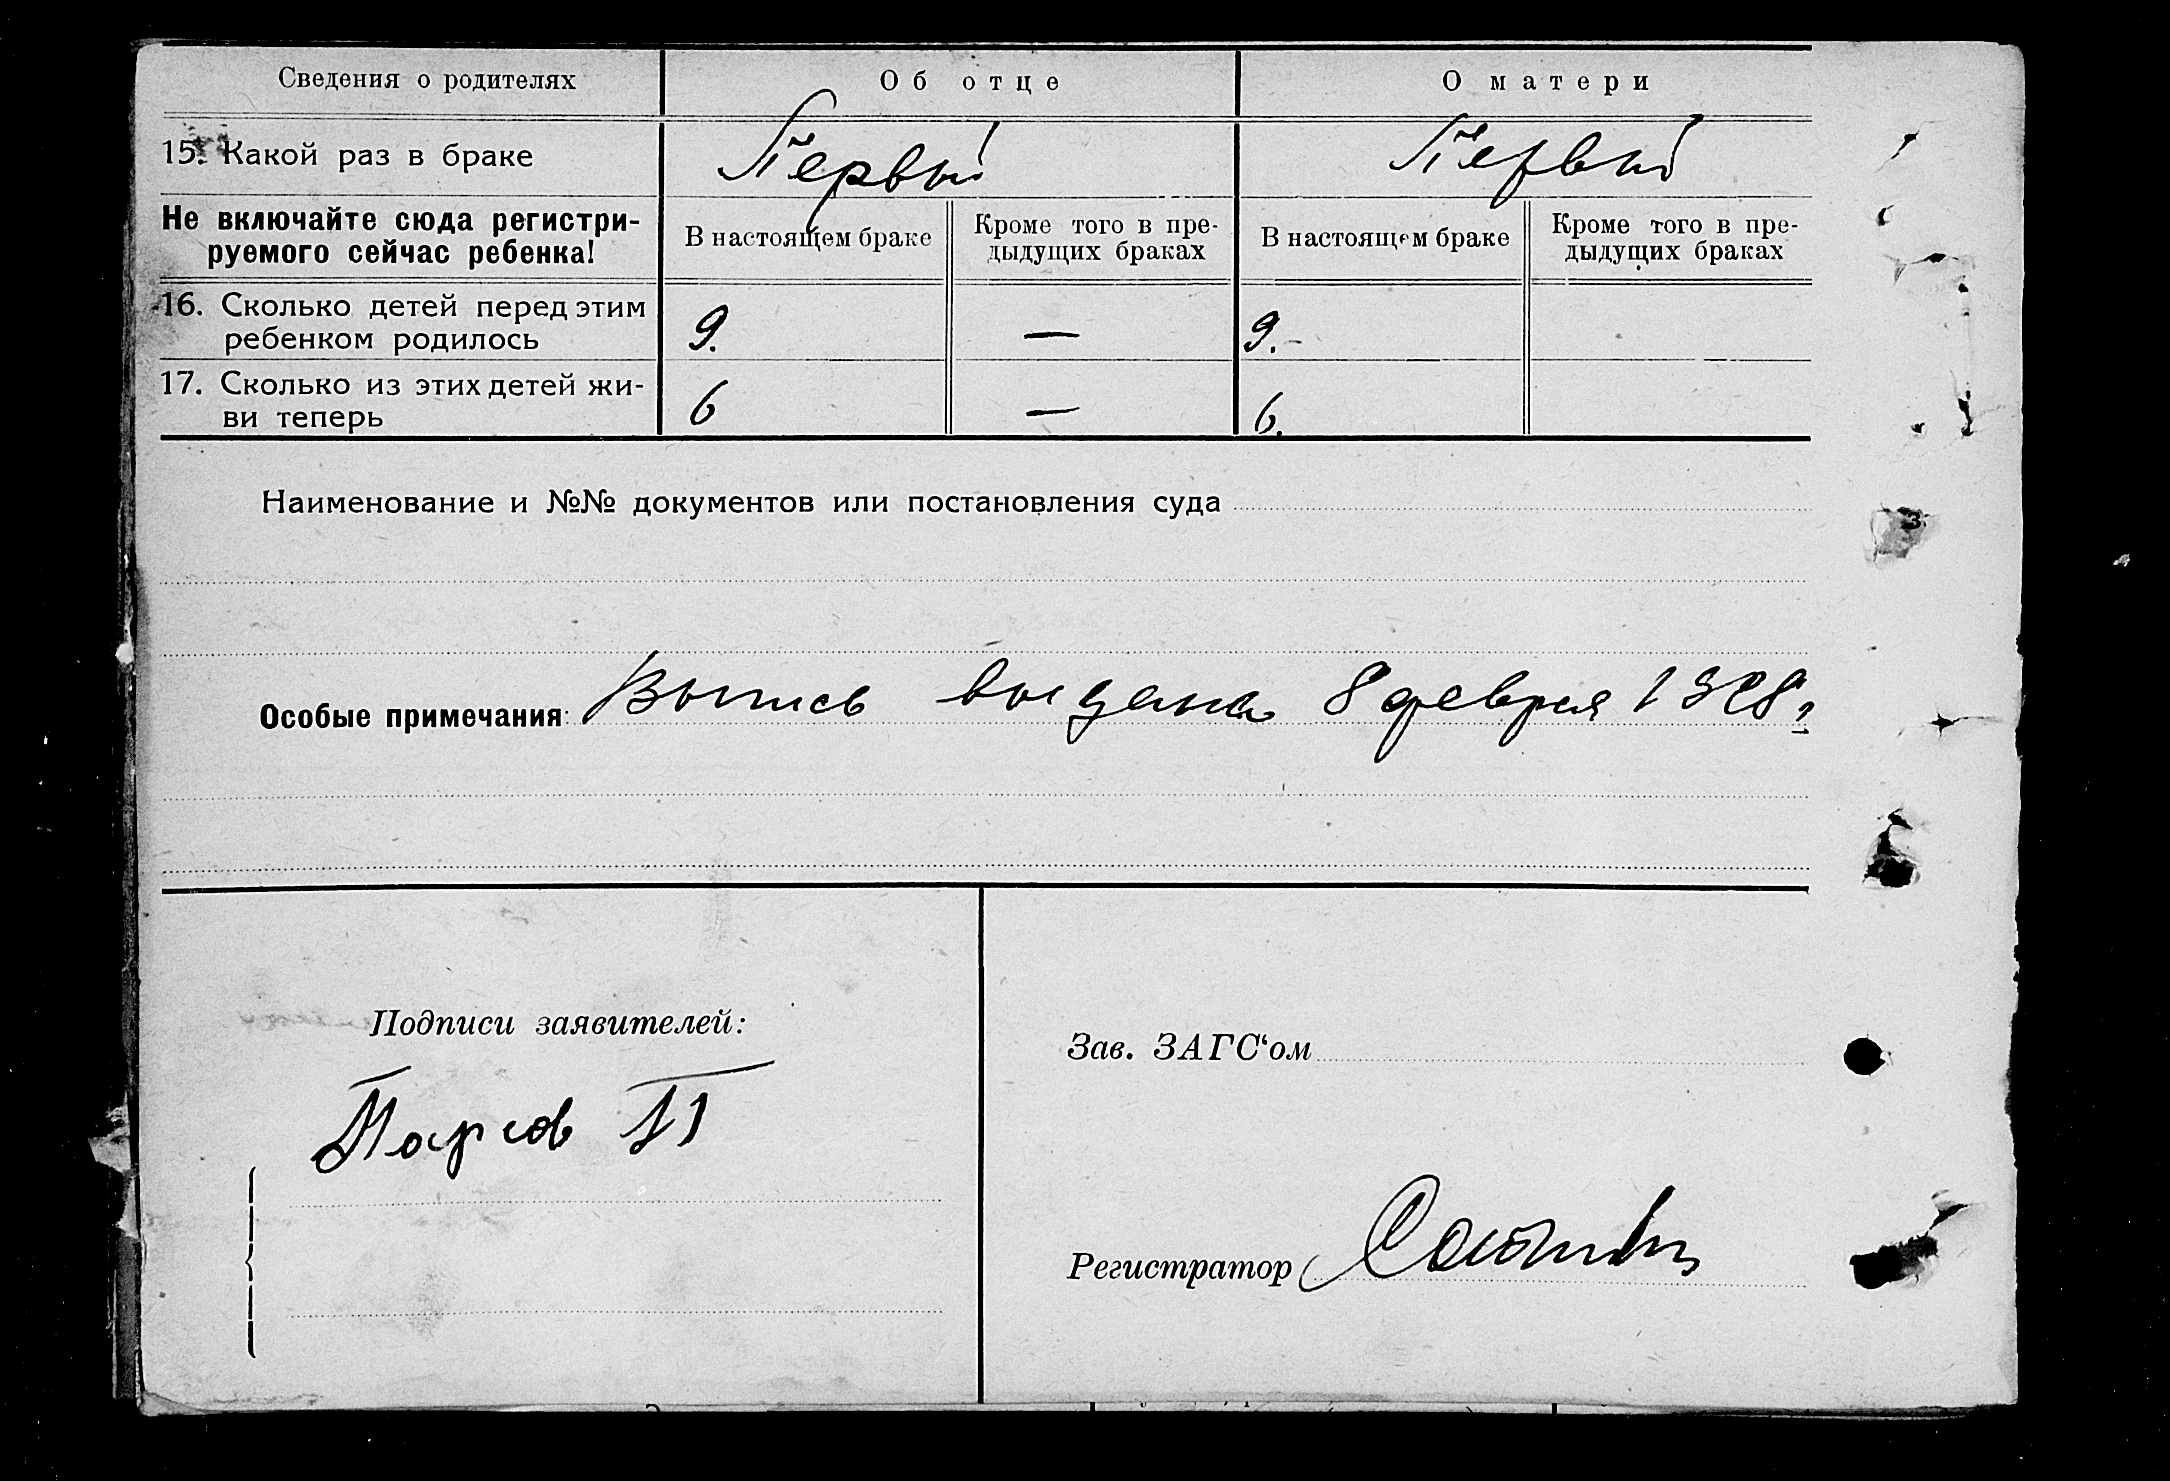 Сведения о родителях
Об отце
О матери
15. Какой раз в браке
Первый
Первый
Не включайте сюда регистри-
руемого сейчас ребенка!
В настоящем браке
Кроме того в пре-
дыдущих браках
В настоящем браке
Кроме того в пре-
дыдущих браках
16. Сколько детей перед этим
ребенком родилось
9.
—
9.-
17. Сколько из этих детей жи-
ви теперь
6
—
6.
Наименование и №№ документов или постановления суда
Особые примечания: Выпись выдана 8 февраля 1928 г
Подписи заявителей:
Зав. ЗАГС‘ом
Регистратор